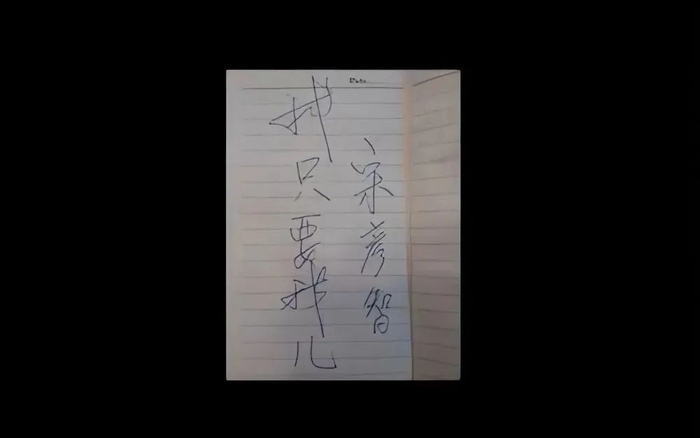 我只要我儿
宋彦智